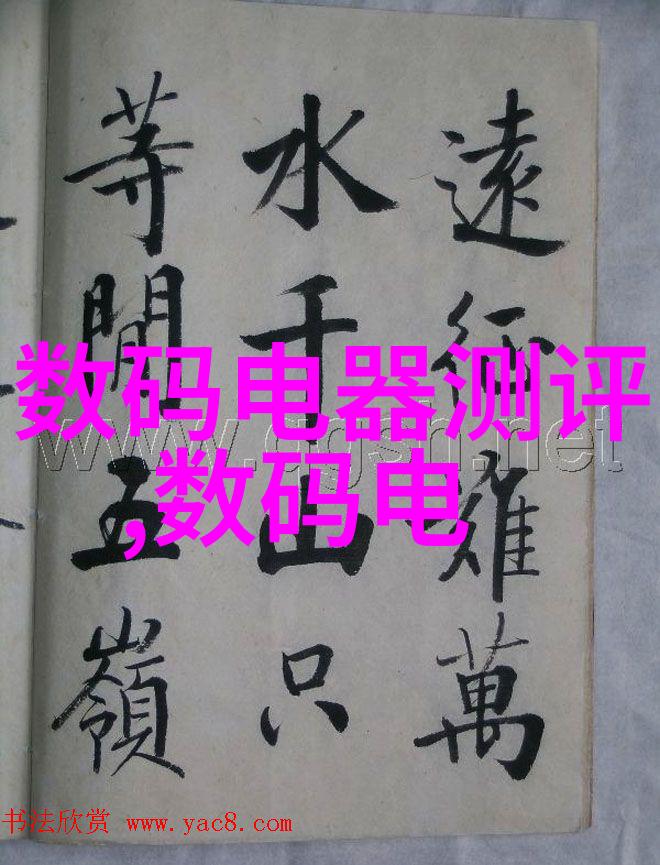 遠征難萬
水千山只
等閒五嶺
数码电器测评
,数码电
书法欣赏 www.yac8.com